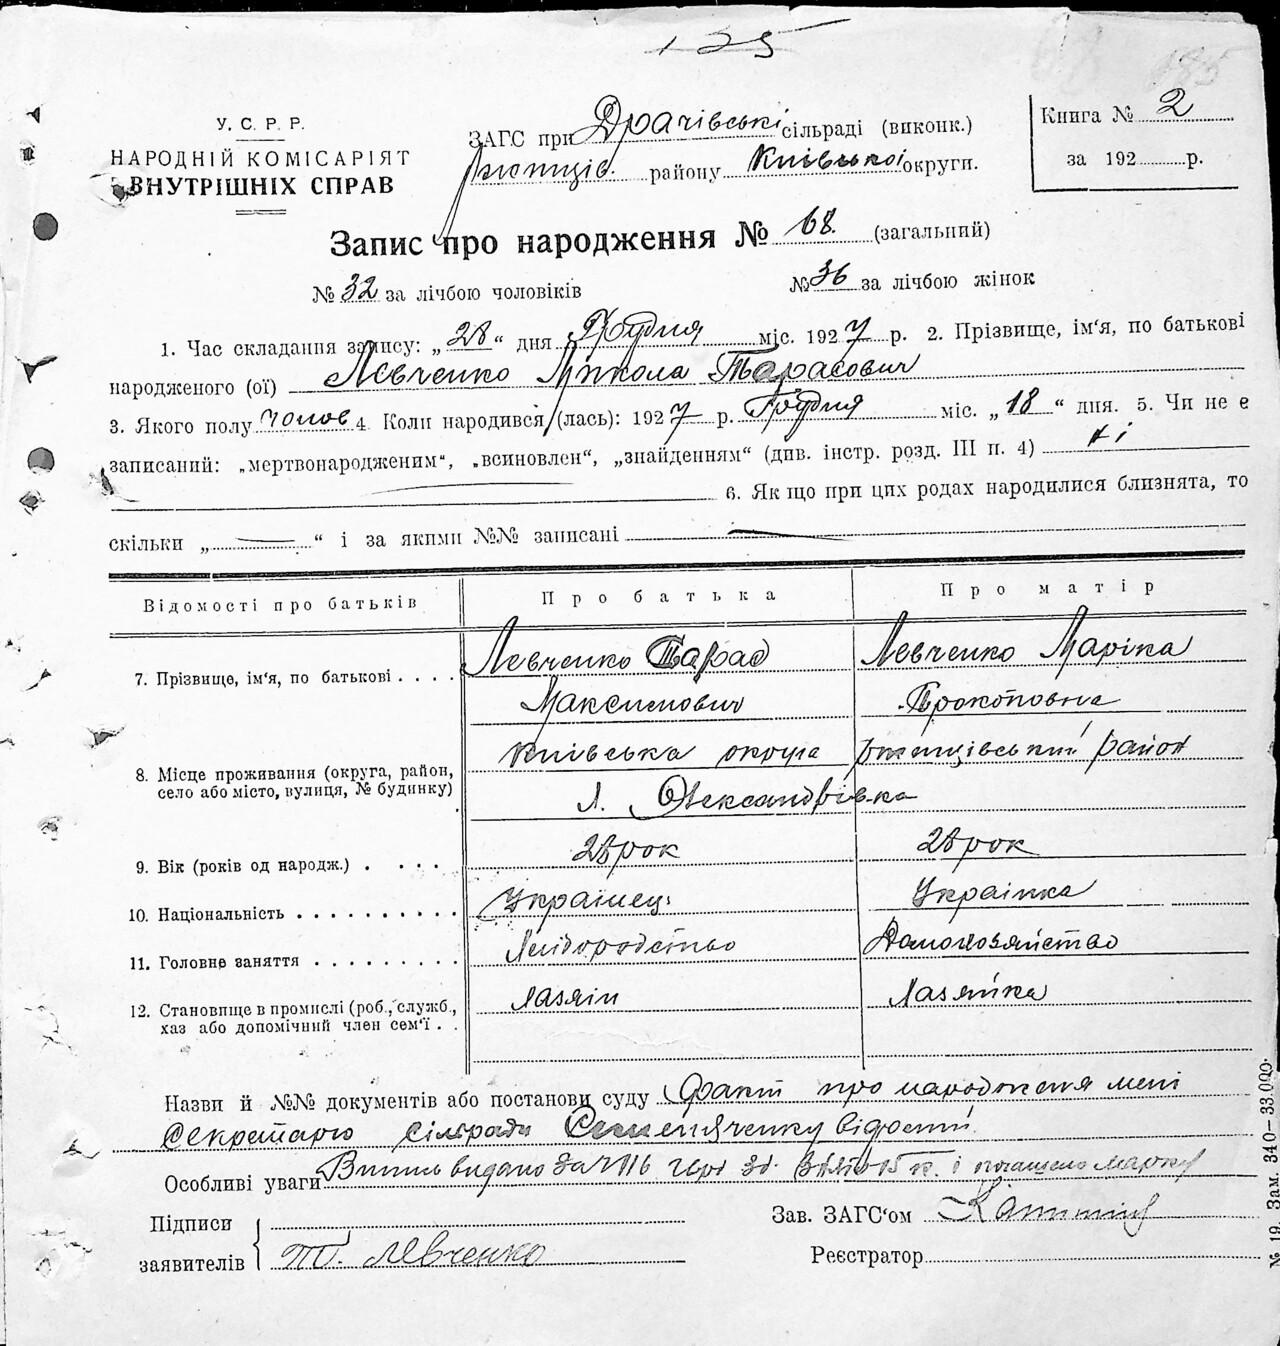 125
У. С. Р. Р.
НАРОДНІЙ КОМІСАРІЯТ
ВНУТРІШНІХ СПРАВ
ЗАГС при Драчівські сільраді (виконк.)
району Київської округи.
Книга № 2
за 192 р.
Запис про народження № 68. (загальний)
№ 32 за лічбою чоловіків № 36 за лічбою жінок
1. Час складання запису: „28“ дня Грудня міс. 1927 р. 2. Прізвище, ім'я, по батькові
народженого (ої) Левченко Микола Тарасович
3. Якого полу чолов 4. Коли народився (лась): 1927 р. Грудня міс. „18“ дня. 5. Чи не є
записаний: „мертвонародженим“, „всиновлен“, „знайденням“ (див. інстр. розд. III п. 4) Ні
6. Якщо при цих родах народилися близнята, то
скільки „ “ і за якими №№ записані
Відомості про батьків Про батька Про матір
7. Прізвище, ім'я, по батькові . . . . Левченко Тарас Левченко Маріка
Максимович Прокоповна
8. Місце проживання (округа, район, село або місто, вулиця, № будинку) Київська округа район
Олександрівка
9. Вік (років од народж.) . . . . 28 рок 28 рок
10. Національність . . . . . . . . . . Українец Українка
11. Головне заняття . . . . . . . . . Домохозяйство
12. Становище в промислі (роб., служб., хаз або допомічний член сем'ї . . Хазяїн Хазяйка
Назви й №№ документів або постанови суду Факт про народженя мені
секретарю сільради відомий.
Особливі уваги видано за
Підписи
заявителів Т. Левченко
Зав. ЗАГС'ом
Реєстратор
№ 19. Зам. 340—33.000.